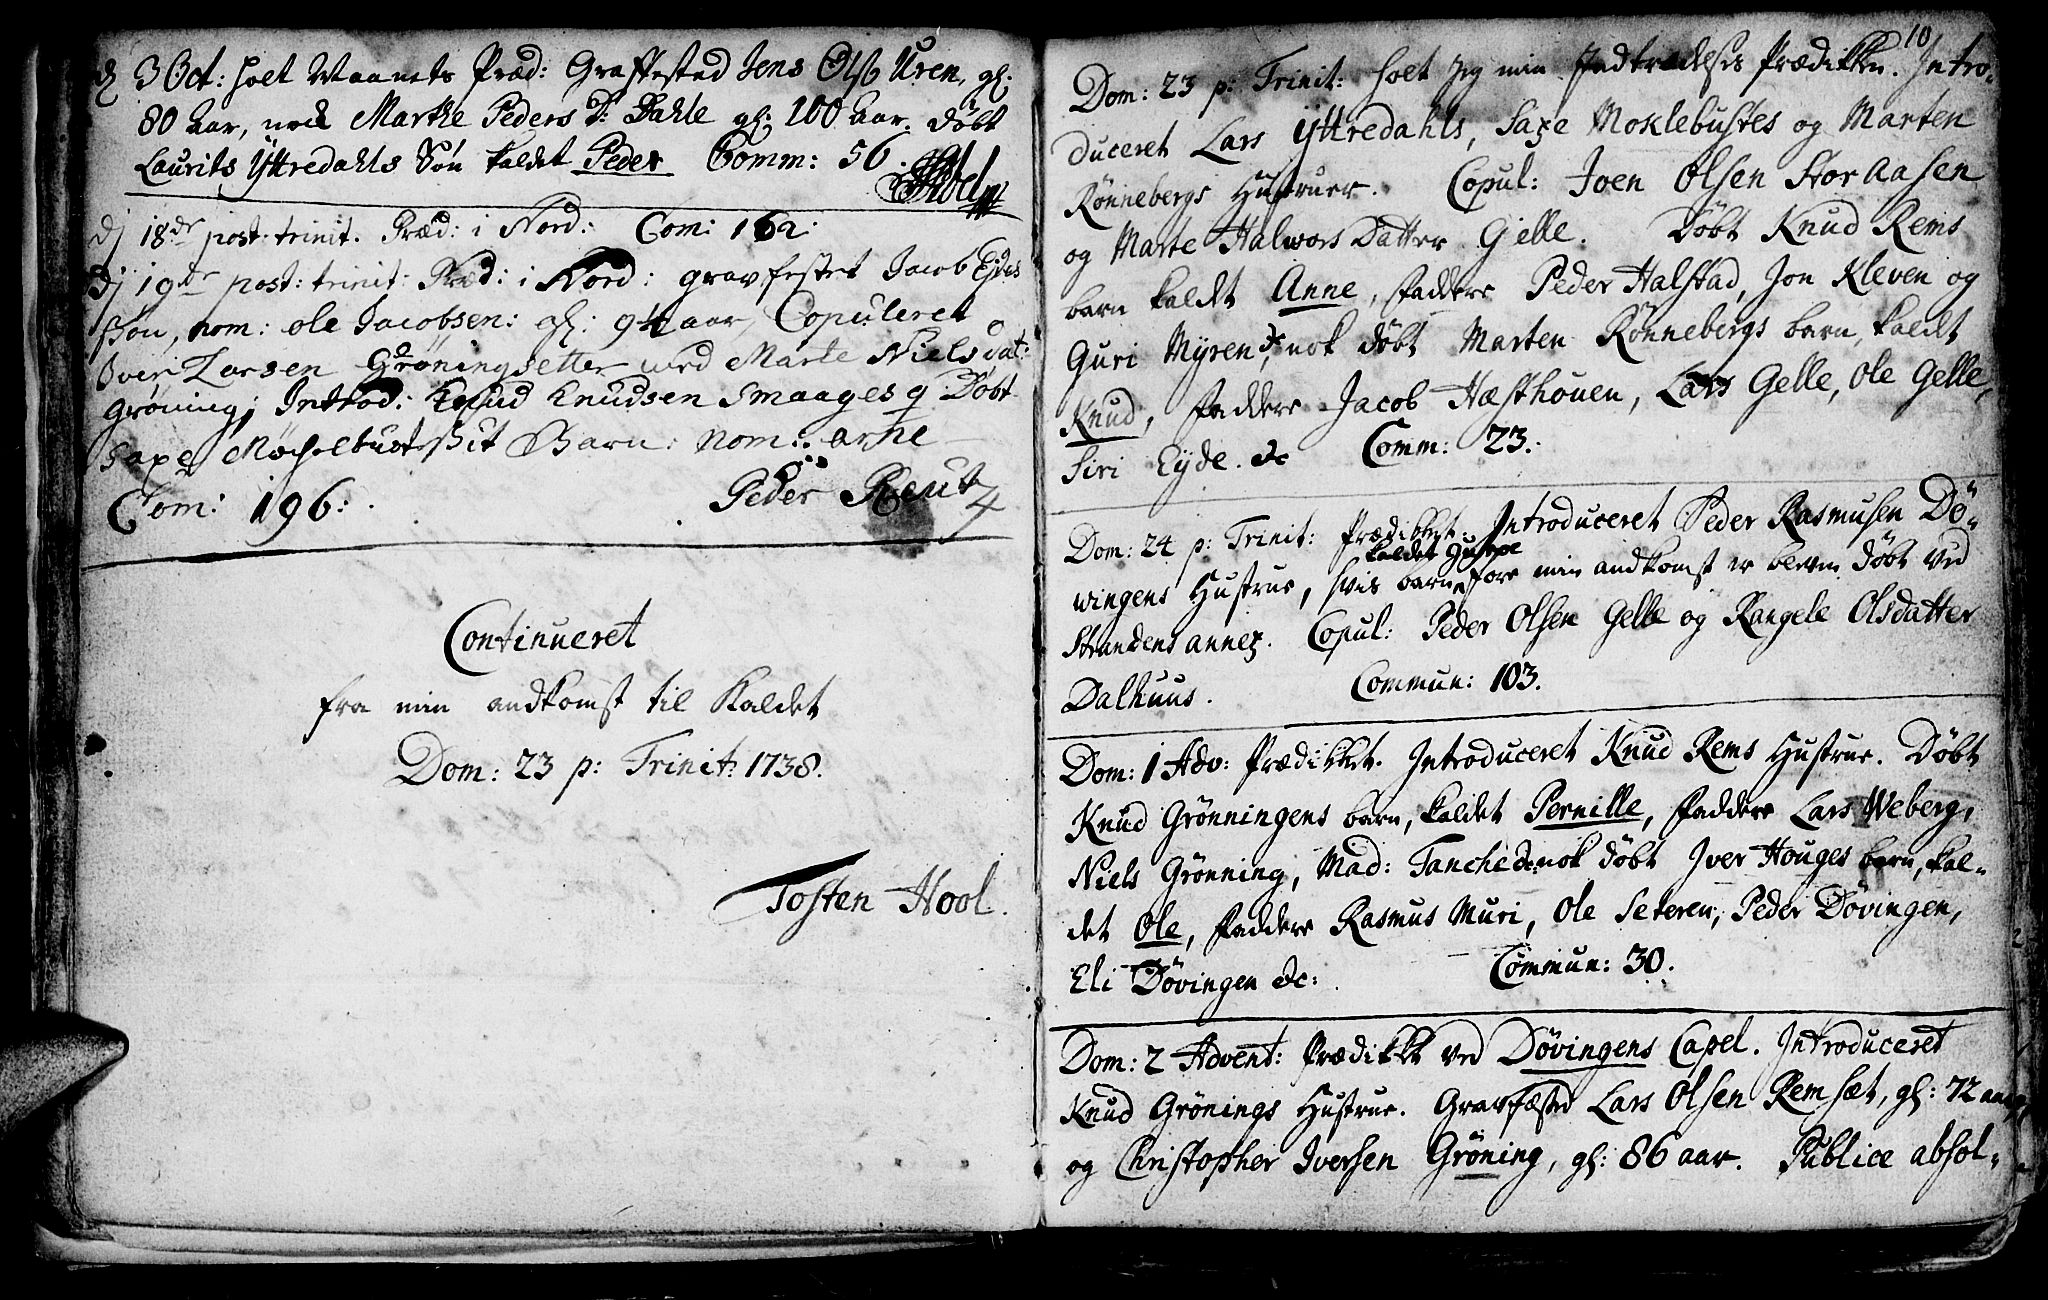 d 3 Oct: holt Maanets Præd: Graffested Jens Olss Uren, gl:
80 aar, nock Marthe Peders D: Dahle gl: 100 Aar. døbt
Laurits Yttredahls Søn kaldet Peder Comm: 56.
Abel
Dj 18de post: trinit. Præd: i Nord: Com: 162:
Dj 19de post: trinit: Præd: i Nord: gravfestet Jacob Ejdes
søn, nom: ole Jacobsen: gl: 9½ aar, Copuleret
Iver Larsen Grøningsetter med Marte Nielsdat:
Grøning; Introd: Knud Knudsen Smaages q Døbt
Saxe Møchelbust sit Barn: nom: arne
Com: 196: Peder Reut
Continueret
fra min andkomst til Kaldet
Dom: 23 p: Trinit: 1738.
Tosten Hool.
10
Dom: 23 p: Trinit: holt jeg min Indtrædelses Prædikken. Intro-
duceret Lars Yttredahls, Saxe Moklebustes og Marten
Rønnebergs Hustruer. Copul: Joen Olsen Storaasen
og Marte Halvors Datter Gelle. Døbt Knud Rems
barn kaldt Anne, Faddere Peder Halstad, Jon Kleven og
Guri Myren &c, nok døbt Marten Rønnebergs barn, kaldt
Knud, Faddere Jacob Hæsthouen, Lars Gelle, Ole Gelle,
Siri Eyde. &c Comm: 23.
Dom: 24 p: Trinit: Prædikket. Introduceret Peder Rasmusen Dø-
kaldet
wingens Hustrue, hvis barn fore min andkomst er bleven døbt ved
Strandens annex. Copul: Peder Olsen Gelle og Rangele Olsdatter
Dalhuus. Commun: 103.
Dom: 1 Adv: Prædikket. Introduceret Knud Rems Hustrue. Døbt
Knud Grønningens barn, kaldet Pernille, Faddere Lars Weberg,
Niels Grønning, Mad: Tanche &c nok døbt Iver Houges barn, kal-
det Ole, Faddere Rasmus Muri, Ole Seteren, Peder Døvingen,
Eli Døvingen &c: Commun: 30.
Dom: 2 Advent: Prædikket ved Døvingens Capel. Introduceret
Knud Grønings Hustrue. Gravfæstet Lars Olsen Remsæt, gl: 72 aar,
og Christopher Iversen Grøning, gl: 86 aar. Publice absol-